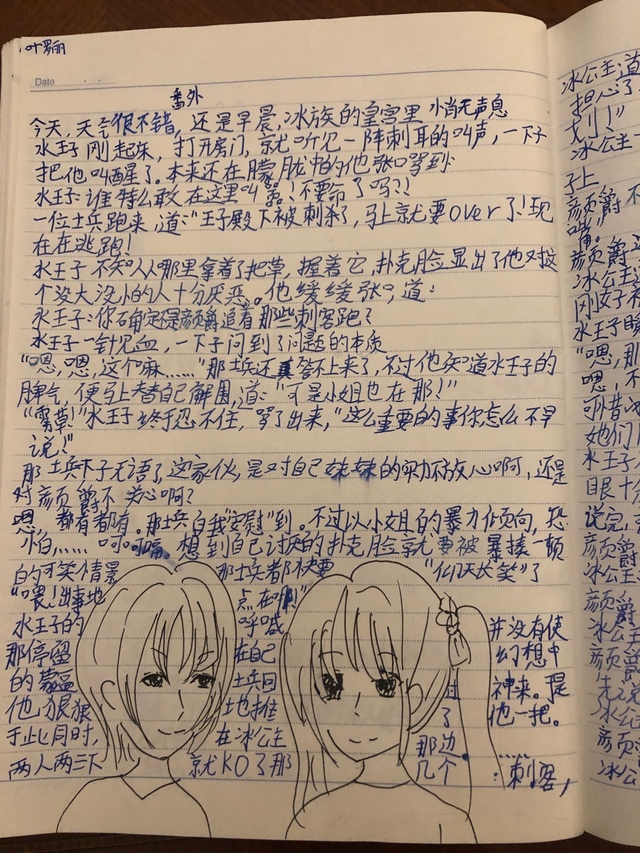 叶罗丽
Date
番外
今天,天气很不错,还是早晨,冰族的皇宫里悄无声息
水王子刚起床,打开房门,就听见一阵刺耳的叫声,一下子
把他叫醒了。本来还在朦胧中的他张口骂到:
水王子:谁特么敢在这里叫嚣!不要命了吗?!
一位士兵跑来,道:"王子殿下被刺杀了,马上就要over了!现
在在逃跑!
水王子不知从哪里拿着了把草,握着它,扑克脸显出了他对这
个没大没小的人十分厌恶。他缓缓张口,道:
水王子:你确定不是颜爵追着那些刺客跑?
水王子一针见血,一下子问到了问题的本质
"嗯,嗯,这个嘛……"那士兵还真答不上来了,不过他知道水王子的
脾气,便马上替自己解围,道:"可是小姐也在那!"
"雾草!"水王子终于忍不住,骂了出来,"这么重要的事你怎么不早
说!"
那士兵一下子无语了,这家伙,是对自己妹妹的实力不放心啊,还是
对颜爵不关心啊?
嗯,都有都有。那士兵自我"安慰"到。不过以小姐的暴力倾向,恐
怕……想到自己讨厌的扑克脸就要被暴揍一顿
的可笑情景 那士兵都快要 "仰天长笑"了
"喂!出事地 点在哪" 并没有使
水王子的 呼喊 幻想中
那停留 在自己 神来。是
的 士兵回 过 他一把。
他狠狠 地推 了 ……
于此同时, 在冰公主 那边
两人两三下 就KO了那 几个 刺客,
冰公主:道
担心了
戈!!"
冰公主
马上
颜爵不
嘴。
颜爵
冰公主:
刚好
水王子
"嗯,那
嗯,不
可惜
她们
水王子
眼十分
说完,
颜爵
冰公主
颜爵
冰公
颜爵
冰公
颜爵
冰公